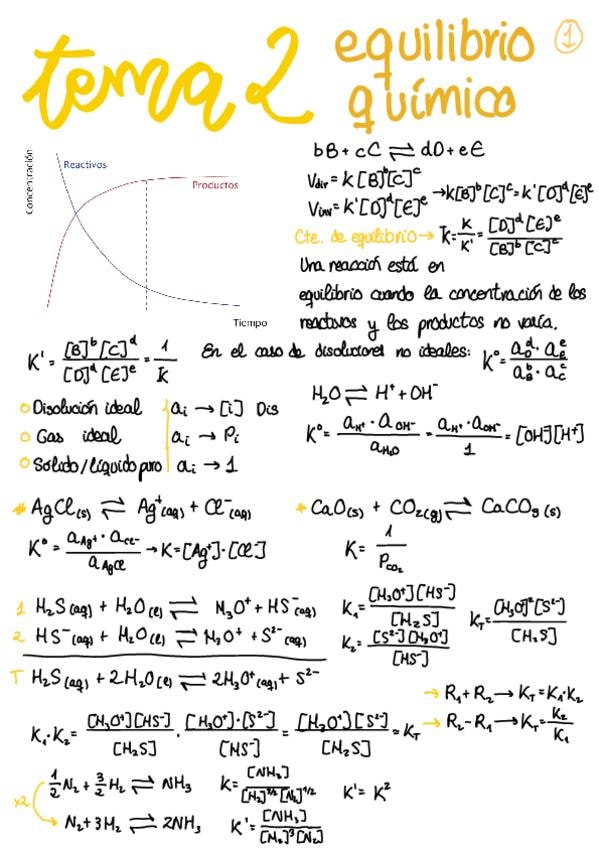 tema 2 equilibrio químico 1
Concentración
Reactivos
Productos
Tiempo
bB + cC ⇌ dD + eE
Vdir = K[B]^b[C]^c
Vinv = K'[D]^d[E]^e → K[B]^b[C]^c = K'[D]^d[E]^e
Cte. de equilibrio → K = K/K' = [D]^d[E]^e / [B]^b[C]^c
Una reacción está en
equilibrio cuando la concentración de los
reactivos y los productos no varía.
K' = [B]^b[C]^d / [D]^d[E]^e = 1/K
En el caso de disoluciones no ideales: K° = a_D^d · a_E^e / a_B^b · a_C^c
Disolución ideal a_i → [i] Dis
Gas ideal a_i → P_i
Sólido/líquido puro a_i → 1
H₂O ⇌ H⁺ + OH⁻
K° = a_H⁺ · a_OH⁻ / a_H₂O = a_H⁺ · a_OH⁻ / 1 = [OH][H⁺]
* AgCl(s) ⇌ Ag⁺(aq) + Cl⁻(aq)
K° = a_Ag⁺ · a_Cl⁻ / a_AgCl → K = [Ag⁺]·[Cl⁻]
* CaO(s) + CO₂(g) ⇌ CaCO₃(s)
K = 1 / P_CO₂
1 H₂S(aq) + H₂O(l) ⇌ H₃O⁺ + HS⁻(aq)
2 HS⁻(aq) + H₂O(l) ⇌ H₃O⁺ + S²⁻(aq)
T H₂S(aq) + 2H₂O(l) ⇌ 2H₃O⁺(aq) + S²⁻
K₁ = [H₃O⁺][HS⁻] / [H₂S]
K₂ = [S²⁻][H₃O⁺] / [HS⁻]
K_T = [H₃O⁺]²[S²⁻] / [H₂S]
K₁·K₂ = [H₃O⁺][HS⁻] / [H₂S] · [H₃O⁺]·[S²⁻] / [HS⁻] = [H₃O⁺][S²⁻] / [H₂S] = K_T
→ R₁ + R₂ → K_T = K₁·K₂
→ R₂ - R₁ → K_T = K₂/K₁
x2
½N₂ + 3/2 H₂ ⇌ NH₃ K = [NH₃] / [H₂]^3/2 [N₂]^1/2 K' = K²
N₂ + 3H₂ ⇌ 2NH₃ K' = [NH₃] / [H₂]³[N₂]